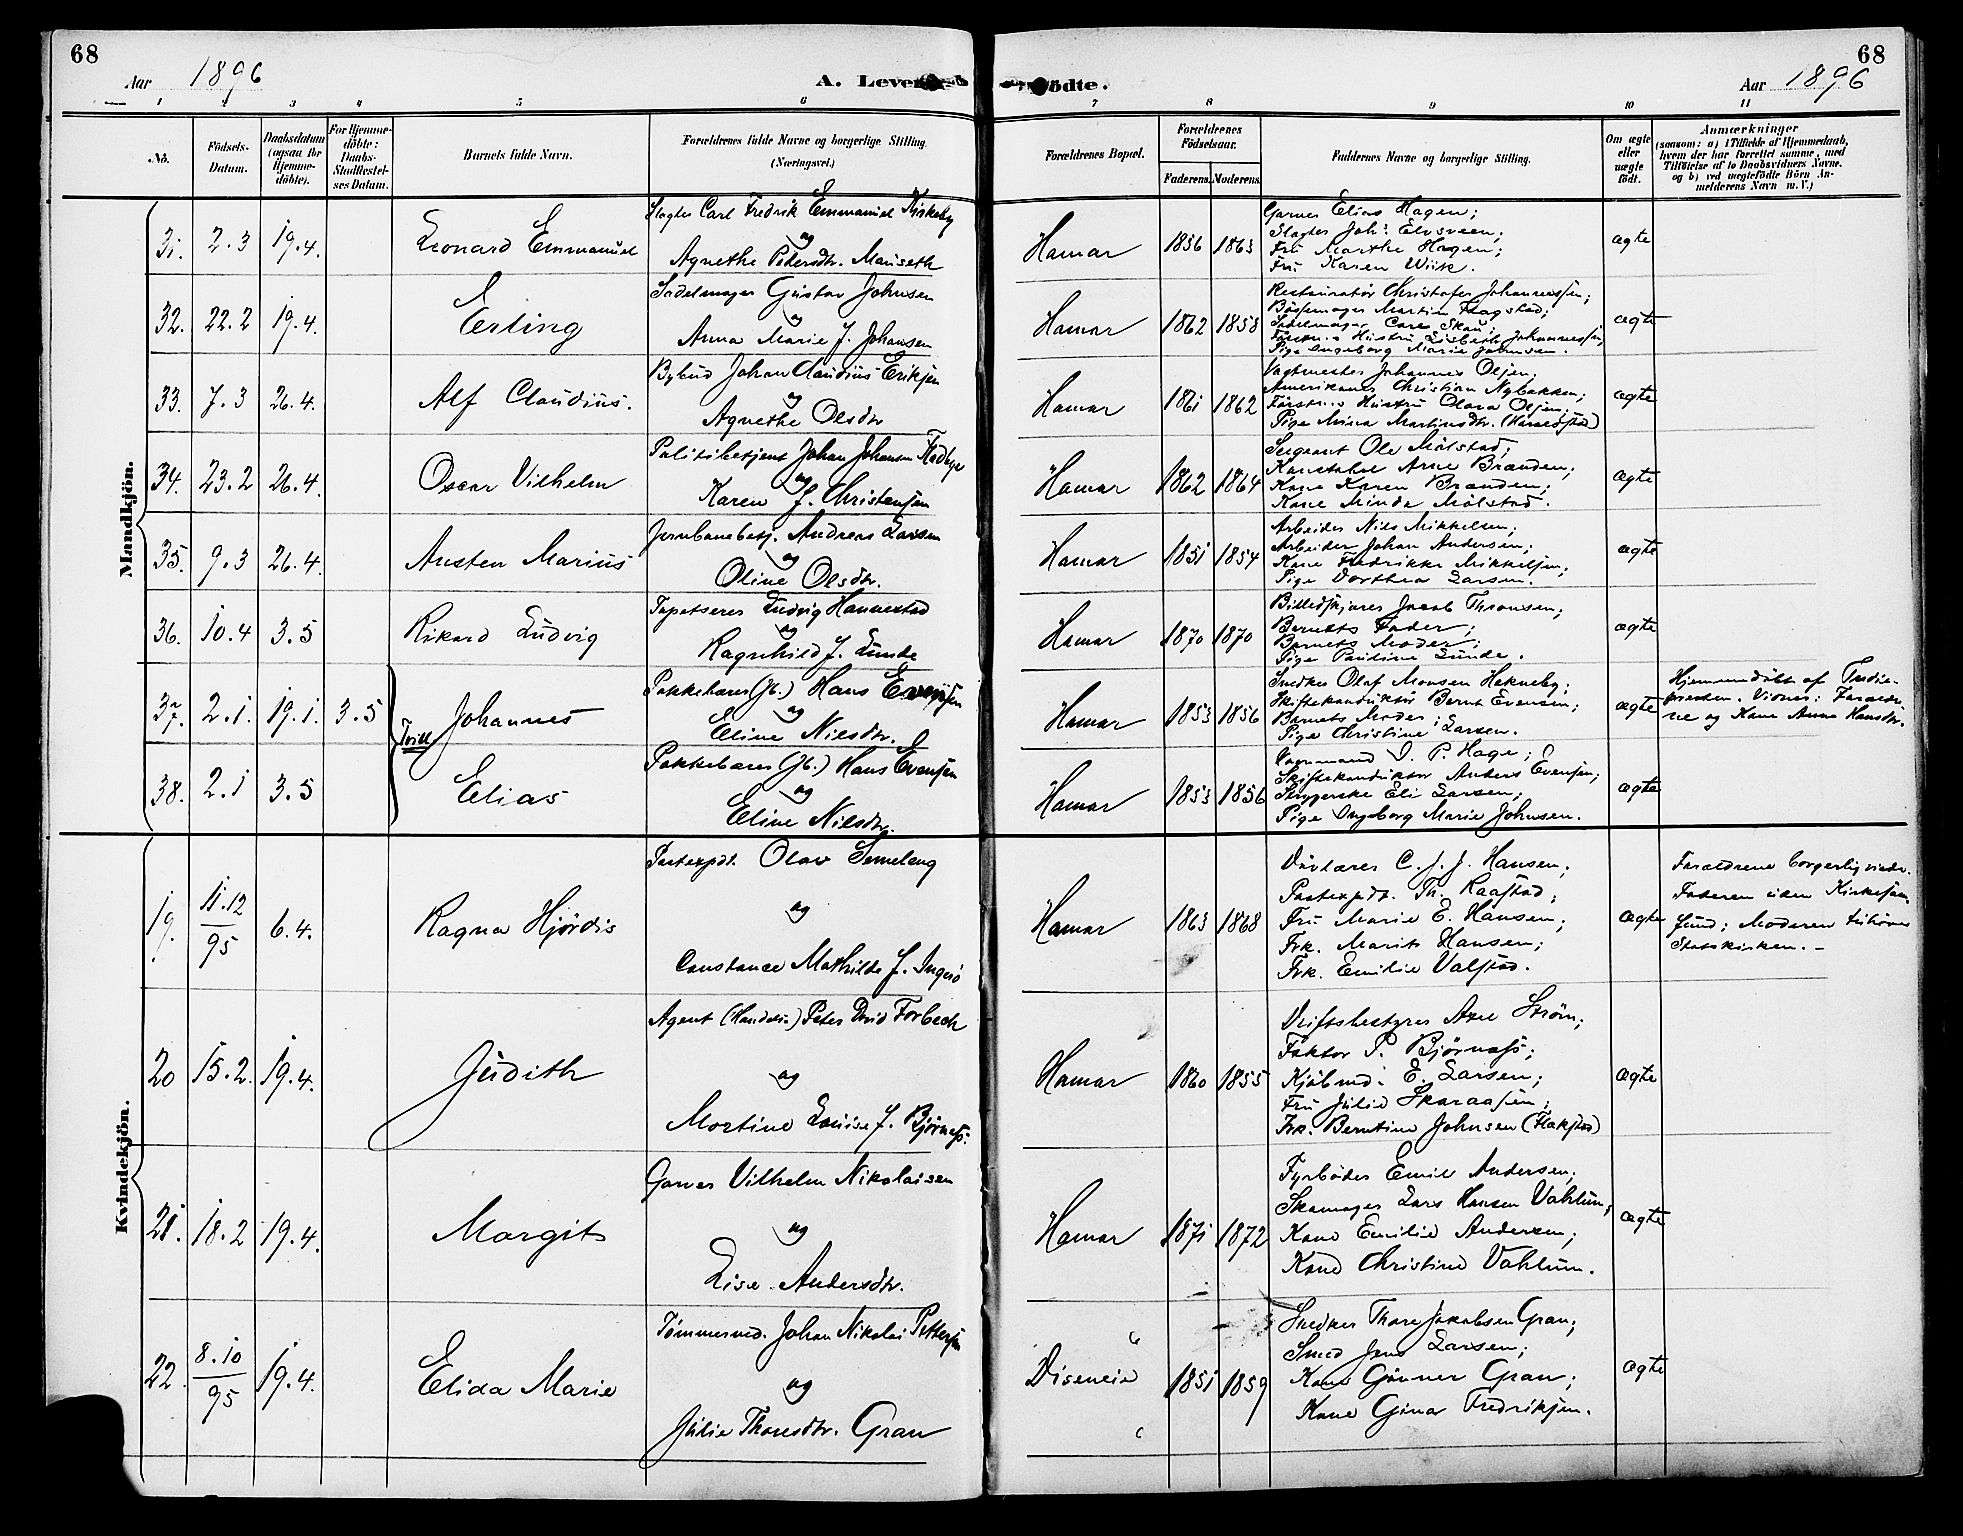 68
68
Aar 1896
A. Leven
ødte.
Aar 1896
1 2 3 4 5 6 7 8 9 10 11
No.
Fødsels-
Datum.
Daabsdatum
(ogsaa for
Hjemme-
døbte).
For Hjemme-
døbte:
Daabs-
Stadfæstel-
ses Datum.
Barnets fulde Navn.
Forældrenes fulde Navne og borgerlige Stilling.
(Næringsvei.)
Forældrenes Bopæl.
Forældrenes
Fødselsaar.
Faderens. Moderens.
Faddernes Navne og borgerlige Stilling.
Om ægte
eller
uægte
født.
Anmærkninger
(saasom: a) i Tilfælde af Hjemmedaab,
hvem der har forrettet samme, med
Tilføielse af to Daabsvidners Navne.
og b) ved uægtefødte Børn An-
melderens Navn m. V.)
Mandkjøn.
31. 2.3 19.4. Leonard Emmanuel
Slagter Carl Fredrik Emmanuel Kirkeby
og
Agnethe Pedersdtr. Mauseth
Hamar 1856 1863
Garver Elias Hagen;
Slagter Johs. Elvsveen;
Fru Marthe Hagen;
Fru Karen Wiik.
ægte
32. 22.2 19.4. Erling
Sadelmager Gustav Johnsen
og
Anna Marie J. Johansen
Hamar 1862 1858
Restauratør Christofer Johannessen;
Bøssemager Martin Flagstad;
Sadelmager Carl Skau;
Førstn.s Hustru Lisbeth Johannessen;
Pige Ingeborg Marie Johnsen.
ægte
33. 7.3 26.4. Alf Claudius.
Bybud Johan Claudius Eriksen
og
Agnethe Olsdtr
Hamar 1861 1862
Vagtmester Johannes Olsen;
Amerikaner Christian Nybakken;
Førstn.s Hustru Olava Olsen;
Pige Mina Martinsdtr. (Haraldstad)
ægte
34. 23.2 26.4. Oscar Vilhelm
Politibetjent Johan Johansen Fladbye
og
Karen J. Christensen
Hamar 1862 1864
Sergeant Ole Mølstad;
Konstabel Arne Brænden;
Kone Karen Brænden;
Kone Minda Mølstad.
ægte
35. 9.3 26.4. Austen Marius
Jernbanebetj. Andreas Larsen
og
Oline Olsdtr.
Hamar 1851 1854
Arbeider Nils Mikkelsen;
Arbeider Johan Andersen;
Kone Fredrikke Mikkelsen;
Pige Dorthea Larsen.
ægte
36. 10.4 3.5 Rikard Ludvig
Tapetserer Ludvig Hannestad
og
Ragnhild J. Lunde
Hamar 1870 1870
Billedskjærer Jacob Thronsen;
Barnets Fader;
Barnets Moder;
Pige Pauline Lunde.
ægte
37. 2.1. 19.1. 3.5 Tvill. Johannes
Pakkebærer (Jb.) Hans Evensen
og
Eline Nilsdtr.
Hamar 1853 1856
Snedker Olaf Monsen Hekneby;
Skiftekonduktør Bernt Evensen;
Barnets Moder;
Pige Christine Larsen.
ægte
Hjemmedøbt af Tredie-
præsten. Vidner: Forældre-
ne og Kone Anna Hansdtr.
38. 2.1 3.5 Elias
Pakkebærer (Jb.) Hans Evensen
og
Eline Nilsdtr.
Hamar 1853 1856
Vognmand I. P. Hage;
Skiftekonduktør Anders Evensen;
Strygerske Eli Larsen;
Pige Ingeborg Marie Johnsen.
ægte
Kvindekjøn.
19. 11.12/95 6.4. Ragna Hjørdis
Postexpdt. Olav Semeleng
og
Constance Mathilde J. Ingerø
Hamar 1863 1868
Døvlærer C. J. J. Hansen;
Postexpdt. Th. Raastad;
Fru Marie E. Hansen;
Frk. Marits Hansen;
Frk. Emilie Valstad.
ægte
Forældrene borgerlig viede.
Faderen uden Kirkesam-
fund; Moderen tilhører
Statskirken. –
20 15.2. 19.4. Judith
Agent (Handels.) Peter David Forbech
og
Martine Louise J. Bjørness.
Hamar 1860 1855
Driftsbestyrer Axel Strøm;
Faktor P. Bjørness;
Kjøbmd. E. Larsen;
Fru Julie Skaraasen;
Frk. Berntine Johnsen (Flakstad)
ægte
21. 18.2 19.4. Margit
Garver Vilhelm Nikolaisen
og
Lise Andersdtr.
Hamar 1871 1872
Fyrbøder Emil Andersen;
Skomager Lars Hansen Vahlum;
Kone Emilie Andersen;
Kone Christine Vahlum.
ægte
22. 8.10/95 19.4. Elida Marie
Tømmermd. Johan Nikolai Pettersen
og
Julie Thoresdtr. Gran
Diseneie 1851 1859
Snedker Thore Jakobsen Gran;
Smed Jens Larsen;
Kone Gunner Gran;
Kone Gina Fredriksen.
ægte